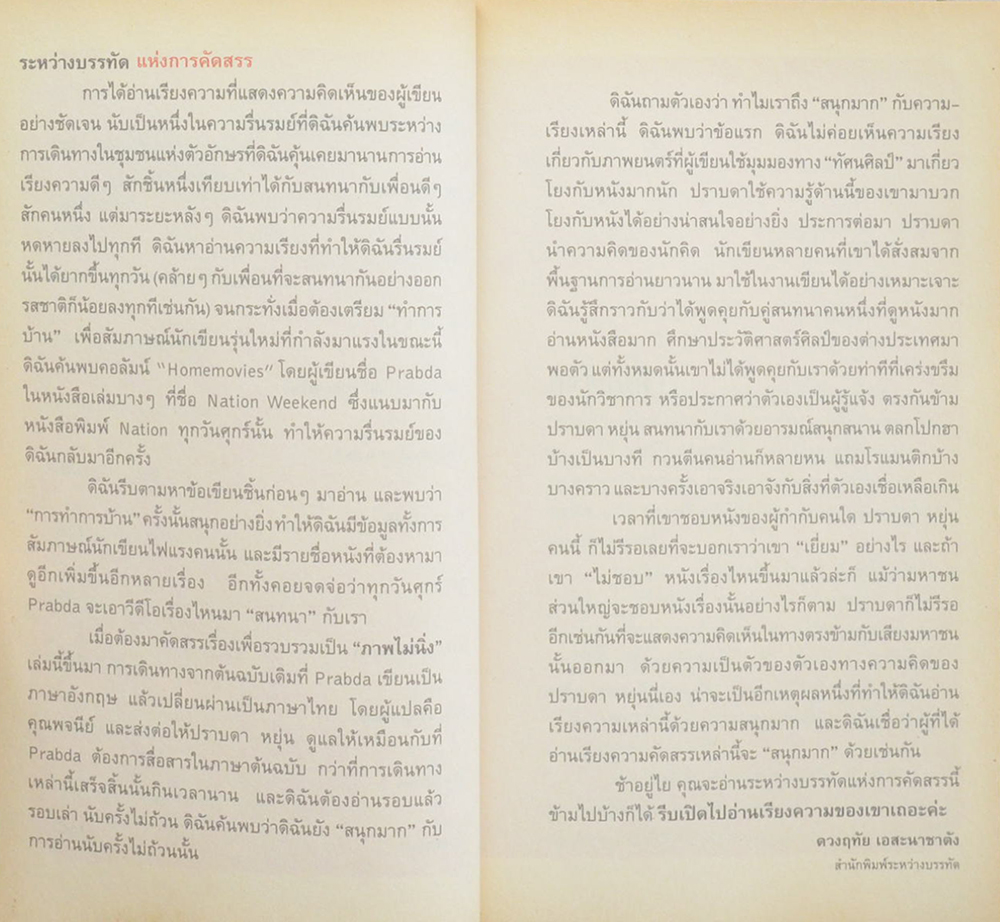 ระหว่างบรรทัด แห่งการคัดสรร
การได้อ่านเรียงความที่แสดงความคิดเห็นของผู้เขียน
อย่างชัดเจน นับเป็นหนึ่งในความรื่นรมย์ที่ดิฉันค้นพบระหว่าง
การเดินทางในชุมชนแห่งตัวอักษรที่ดิฉันคุ้นเคยมานานการอ่าน
เรียงความดีๆ สักชิ้นหนึ่งเทียบเท่าได้กับสนทนากับเพื่อนดีๆ
สักคนหนึ่ง แต่มาระยะหลังๆ ดิฉันพบว่าความรื่นรมย์แบบนั้น
หดหายลงไปทุกที ดิฉันหาอ่านความเรียงที่ทำให้ดิฉันรื่นรมย์
นั้นได้ยากขึ้นทุกวัน (คล้ายๆ กับเพื่อนที่จะสนทนากันอย่างออก
รสชาติก็น้อยลงทุกทีเช่นกัน) จนกระทั่งเมื่อต้องเตรียม “ทำการ
บ้าน” เพื่อสัมภาษณ์นักเขียนรุ่นใหม่ที่กำลังมาแรงในขณะนี้
ดิฉันค้นพบคอลัมน์ “Homemovies” โดยผู้เขียนชื่อ Prabda
ในหนังสือเล่มบางๆ ที่ชื่อ Nation Weekend ซึ่งแนบมากับ
หนังสือพิมพ์ Nation ทุกวันศุกร์นั้น ทำให้ความรื่นรมย์ของ
ดิฉันกลับมาอีกครั้ง
ดิฉันรีบตามหาข้อเขียนชิ้นก่อนๆ มาอ่าน และพบว่า
“การทำการบ้าน” ครั้งนั้นสนุกอย่างยิ่ง ทำให้ดิฉันมีข้อมูลทั้งการ
สัมภาษณ์นักเขียนไฟแรงคนนั้น และมีรายชื่อหนังที่ต้องหามา
ดูอีกเพิ่มขึ้นอีกหลายเรื่อง อีกทั้งคอยจดจ่อว่าทุกวันศุกร์
Prabda จะเอาวีดีโอเรื่องไหนมา “สนทนา” กับเรา
เมื่อต้องมาคัดสรรเรื่องเพื่อรวบรวมเป็น “ภาพไม่นิ่ง”
เล่มนี้ขึ้นมา การเดินทางจากต้นฉบับเดิมที่ Prabda เขียนเป็น
ภาษาอังกฤษ แล้วเปลี่ยนผ่านเป็นภาษาไทย โดยผู้แปลคือ
คุณพจนีย์ และส่งต่อให้ปราบดา หยุ่น ดูแลให้เหมือนกับที่
Prabda ต้องการสื่อสารในภาษาต้นฉบับ กว่าที่การเดินทาง
เหล่านี้เสร็จสิ้นนั้นกินเวลานาน และดิฉันต้องอ่านรอบแล้ว
รอบเล่า นับครั้งไม่ถ้วน ดิฉันค้นพบว่าดิฉันยัง “สนุกมาก” กับ
การอ่านนับครั้งไม่ถ้วนนั้น
ดิฉันถามตัวเองว่า ทำไมเราถึง “สนุกมาก” กับความ-
เรียงเหล่านี้ ดิฉันพบว่าข้อแรก ดิฉันไม่ค่อยเห็นความเรียง
เกี่ยวกับภาพยนตร์ที่ผู้เขียนใช้มุมมองทาง “ทัศนศิลป์” มาเกี่ยว
โยงกับหนังมากนัก ปราบดาใช้ความรู้ด้านนี้ของเขามาบวก
โยงกับหนังได้อย่างน่าสนใจอย่างยิ่ง ประการต่อมา ปราบดา
นำความคิดของนักคิด นักเขียนหลายคนที่เขาได้สั่งสมจาก
พื้นฐานการอ่านยาวนาน มาใช้ในงานเขียนได้อย่างเหมาะเจาะ
ดิฉันรู้สึกราวกับว่าได้พูดคุยกับคู่สนทนาคนหนึ่งที่ดูหนังมาก
อ่านหนังสือมาก ศึกษาประวัติศาสตร์ศิลป์ของต่างประเทศมา
พอตัว แต่ทั้งหมดนั้นเขาไม่ได้พูดคุยกับเราด้วยท่าทีที่เคร่งขรึม
ของนักวิชาการ หรือประกาศว่าตัวเองเป็นผู้รู้แจ้ง ตรงกันข้าม
ปราบดา หยุ่น สนทนากับเราด้วยอารมณ์สนุกสนาน ตลกโปกฮา
บ้างเป็นบางที กวนตีนคนอ่านก็หลายหน แถมโรแมนติกบ้าง
บางคราว และบางครั้งเอาจริงเอาจังกับสิ่งที่ตัวเองเชื่อเหลือเกิน
เวลาที่เขาชอบหนังของผู้กำกับคนใด ปราบดา หยุ่น
คนนี้ ก็ไม่รีรอเลยที่จะบอกเราว่าเขา “เยี่ยม” อย่างไร และถ้า
เขา “ไม่ชอบ” หนังเรื่องไหนขึ้นมาแล้วล่ะก็ แม้ว่ามหาชน
ส่วนใหญ่จะชอบหนังเรื่องนั้นอย่างไรก็ตาม ปราบดาก็ไม่รีรอ
อีกเช่นกันที่จะแสดงความคิดเห็นในทางตรงข้ามกับเสียงมหาชน
นั้นออกมา ด้วยความเป็นตัวของตัวเองทางความคิดของ
ปราบดา หยุ่นนี่เอง น่าจะเป็นอีกเหตุผลหนึ่งที่ทำให้ดิฉันอ่าน
เรียงความเหล่านี้ด้วยความสนุกมาก และดิฉันเชื่อว่าผู้ที่ได้
อ่านเรียงความคัดสรรเหล่านี้จะ “สนุกมาก” ด้วยเช่นกัน
ช้าอยู่ไย คุณจะอ่านระหว่างบรรทัดแห่งการคัดสรรนี้
ข้ามไปบ้างก็ได้ รีบเปิดไปอ่านเรียงความของเขาเถอะค่ะ
ดวงฤทัย เอสะนาชาตัง
สำนักพิมพ์ระหว่างบรรทัด